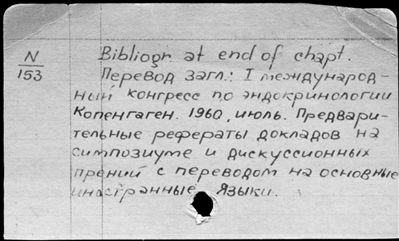 N
153
Bibliogr. at end of chapt.
Перевод загл.: I международ-
ный конгресс по эндокринологии
Копенгаген. 1960, июль. Предвари-
тельные рефераты докладов на
симпозиуме и дискуссионных
прений с переводом на основные
иностранные языки.